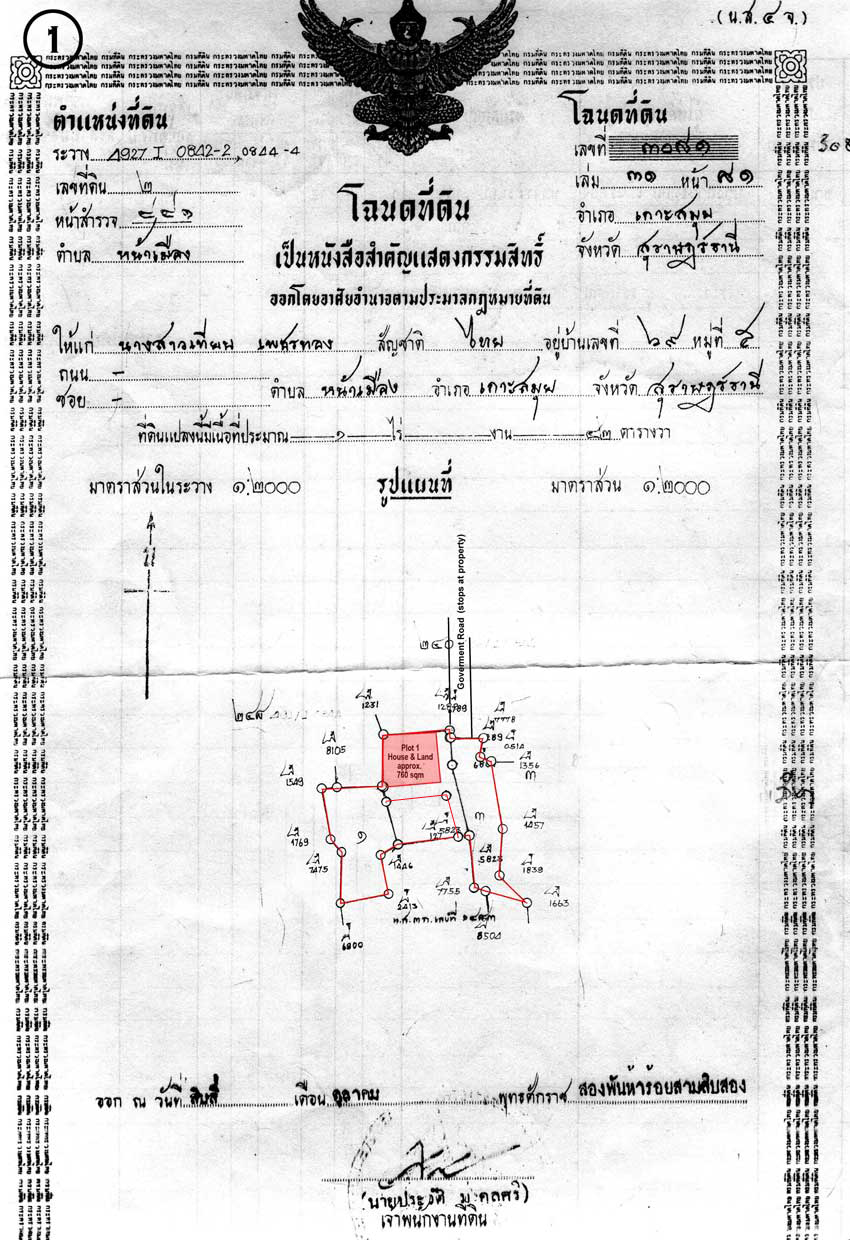 1
(น.ส. ๔ จ.)
ตำแหน่งที่ดิน
ระวาง 4927 I 0842-2, 0844-4
เลขที่ดิน ๒
หน้าสำรวจ
ตำบล หน้าเมือง
โฉนดที่ดิน
เลขที่ ๓๐๘๑
เล่ม ๓๑ หน้า ๘๑
อำเภอ เกาะสมุย
จังหวัด สุราษฎร์ธานี
โฉนดที่ดิน
เป็นหนังสือสำคัญแสดงกรรมสิทธิ์
ออกโดยอาศัยอำนาจตามประมวลกฎหมายที่ดิน
ให้แก่ นางสาวเทียม เพชรทอง สัญชาติ ไทย อยู่บ้านเลขที่ ๖๙ หมู่ที่ ๕
ถนน –
ซอย – ตำบล หน้าเมือง อำเภอ เกาะสมุย จังหวัด สุราษฎร์ธานี
ที่ดินแปลงนี้มีเนื้อที่ประมาณ ๑ ไร่ – งาน ๔๓ ตารางวา
มาตราส่วนในระวาง ๑:๒๐๐๐
รูปแผนที่
มาตราส่วน ๑:๒๐๐๐
น
Goverment Road (stops at property)
๒๔๐
๒๔๘
1231
8105
1549
1356
Plot 1
House & Land
approx.
760 sqm
๓
๑
๓
1769
7475
1446
5823
1457
5823
1838
7755
2413
1663
6800
8504
ออก ณ วันที่ สิบสี่ เดือน ตุลาคม พุทธศักราช สองพันห้าร้อยสามสิบสอง
เจ้าพนักงานที่ดิน